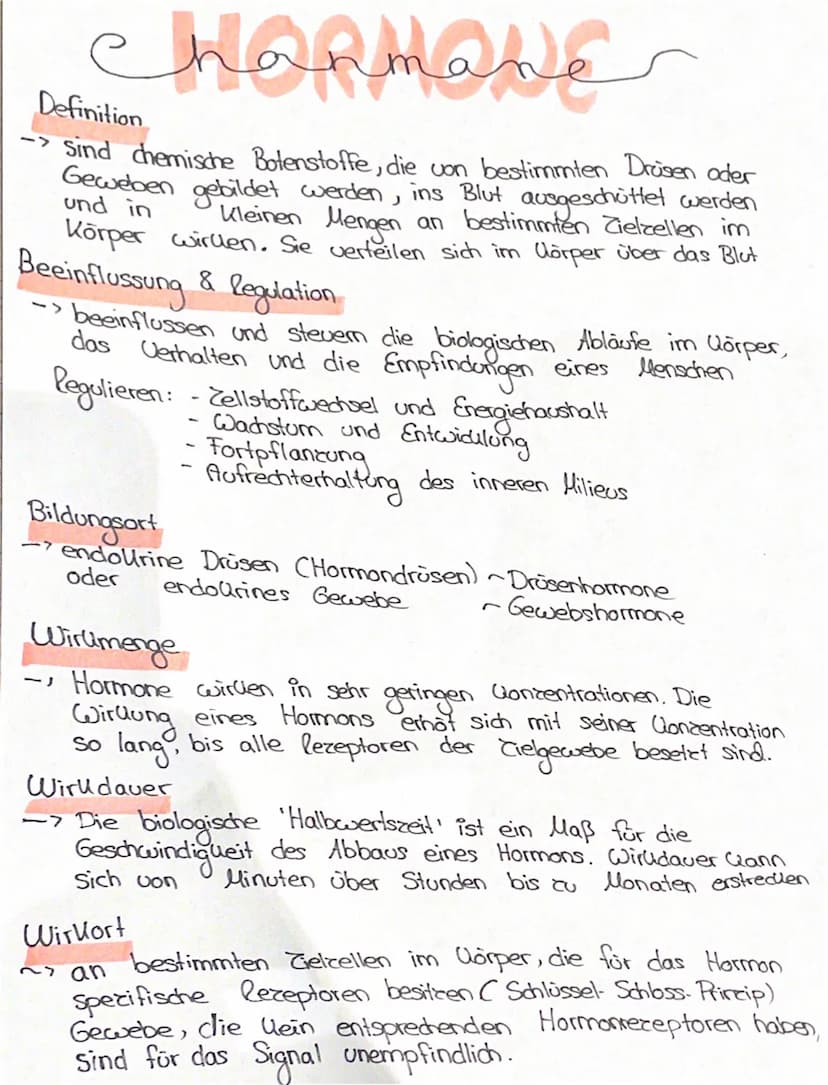 HORMONE
hormone
Definition
-> sind chemische Botenstoffe, die von bestimmten Drüsen oder
Geweben gebildet werden, ins Blut ausgeschüttet werden
und in kleinen Mengen an bestimmten Zielzellen im
Körper wirken. Sie verteilen sich im Körper über das Blut
Beeinflussung & Regulation
-> beeinflussen und steuern die biologischen Abläufe im Körper,
das Verhalten und die Empfindungen eines Menschen
Regulieren: - Zellstoffwechsel und Energiehaushalt
- Wachstum und Entwicklung
- Fortpflanzung
- Aufrechterhaltung des inneren Milieus
Bildungsort
-> endokrine Drüsen (Hormondrüsen) ~ Drüsenhormone
oder endokrines Gewebe ~ Gewebshormone
Wirkmenge
-> Hormone wirken in sehr geringen Konzentrationen. Die
Wirkung eines Hormons erhöt sich mit seiner Konzentration
so lang, bis alle Rezeptoren der Zielgewebe besetzt sind.
Wirkdauer
-> Die biologische 'Halbwertszeit' ist ein Maß für die
Geschwindigkeit des Abbaus eines Hormons. Wirkdauer kann
sich von Minuten über Stunden bis zu Monaten erstrecken
Wirkort
~> an bestimmten Zielzellen im Körper, die für das Hormon
spezifische Rezeptoren besitzen (Schlüssel-Schloss-Prinzip)
Gewebe, die kein entsprechenden Hormonrezeptoren haben,
sind für das Signal unempfindlich.